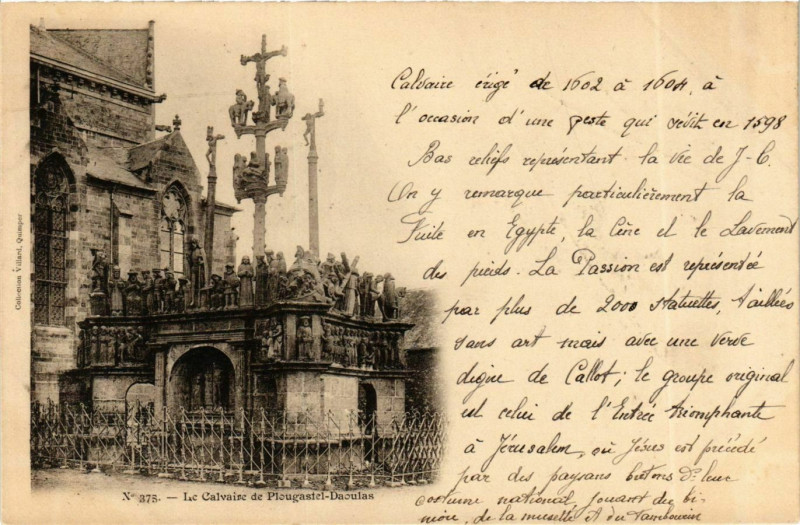 Collection Villard, Quimper
Nº 375. — Le Calvaire de Plougastel-Daoulas
Calvaire érigé de 1602 à 1604, à
l'occasion d'une peste qui sévit en 1598
Bas reliefs représentant la vie de J-C.
On y remarque particulièrement la
Fuite en Egypte, la Cène et le Lavement
des pieds. La Passion est représentée
par plus de 2000 statuettes, taillées
sans art mais avec une verve
digne de Callot; le groupe original
est celui de l'Entrée triomphante
à Jérusalem, où Jésus est précédé
par des paysans bretons ds leur
costume national, jouant du bi-
niou, de la musette et du tambourin